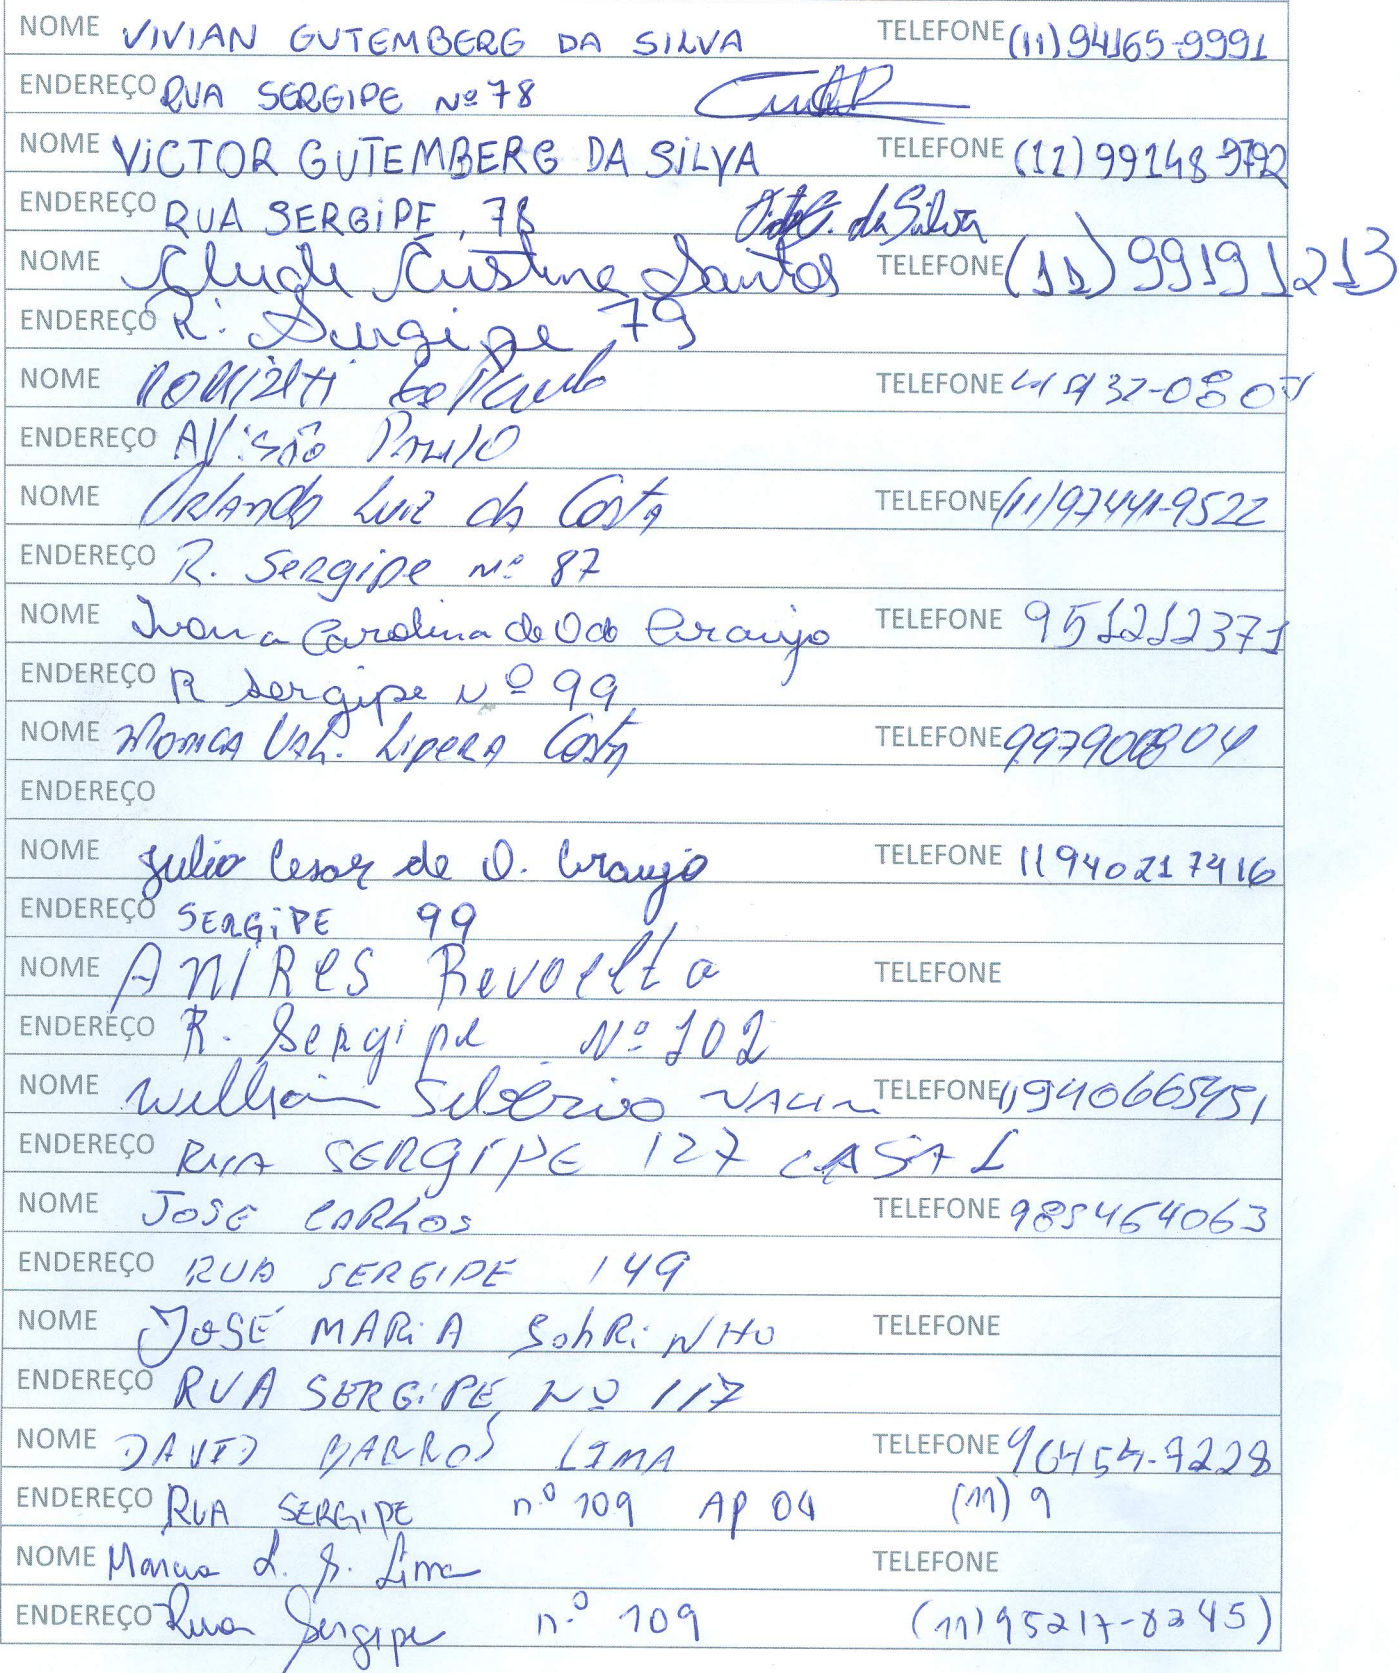 NOME VIVIAN GUTEMBERG DA SILVA TELEFONE (11) 94165-9991
ENDEREÇO RUA SERGIPE Nº 78
NOME VICTOR GUTEMBERG DA SILVA TELEFONE (11) 99148-9792
ENDEREÇO RUA SERGIPE, 78 da Silva
NOME Cristina Santos TELEFONE (11) 991911213
ENDEREÇO R: Sergipe 79
NOME TELEFONE
ENDEREÇO AV: São Paulo
NOME Orlando Luiz da Costa TELEFONE (11) 97441-9522
ENDEREÇO R. Sergipe nº 87
NOME Ivana Carolina de Araujo TELEFONE 951212371
ENDEREÇO R Sergipe Nº 99
NOME Monica Costa TELEFONE
ENDEREÇO
NOME Julio Cesar de O. Araujo TELEFONE 11940217416
ENDEREÇO SERGIPE 99
NOME ANIRES Revoelta TELEFONE
ENDEREÇO R. Sergipe Nº 102
NOME Willian TELEFONE
ENDEREÇO RUA SERGIPE 127 CASA 1
NOME JOSE CARLOS TELEFONE 985464063
ENDEREÇO RUA SERGIPE 149
NOME JOSÉ MARIA SobRiNHO TELEFONE
ENDEREÇO RUA SERGIPE Nº 117
NOME DAVID BARROS LIMA TELEFONE 96454-7228
ENDEREÇO RUA SERGIPE n.º 109 AP 04 (11) 9
NOME L. S. Lima TELEFONE
ENDEREÇO Rua Sergipe n.º 109 (11) 95217-8245)